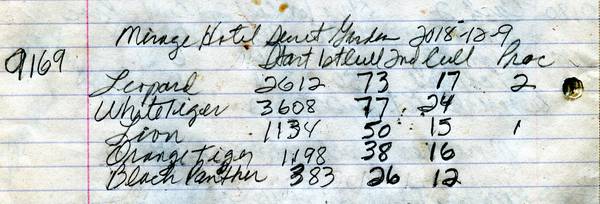 Mirage Hotel Secret Garden 2018-12-9
9169 Start 1stCull 2nd Cull Proc
Leopard 2612 73 17 2
White Tiger 3608 77 24
Lion 1134 50 15 1
Orange Tiger 1198 38 16
Black Panther 383 26 12